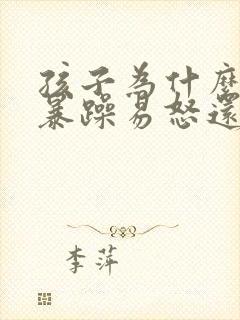 孩子為什麼
暴躁易怒還
李萍